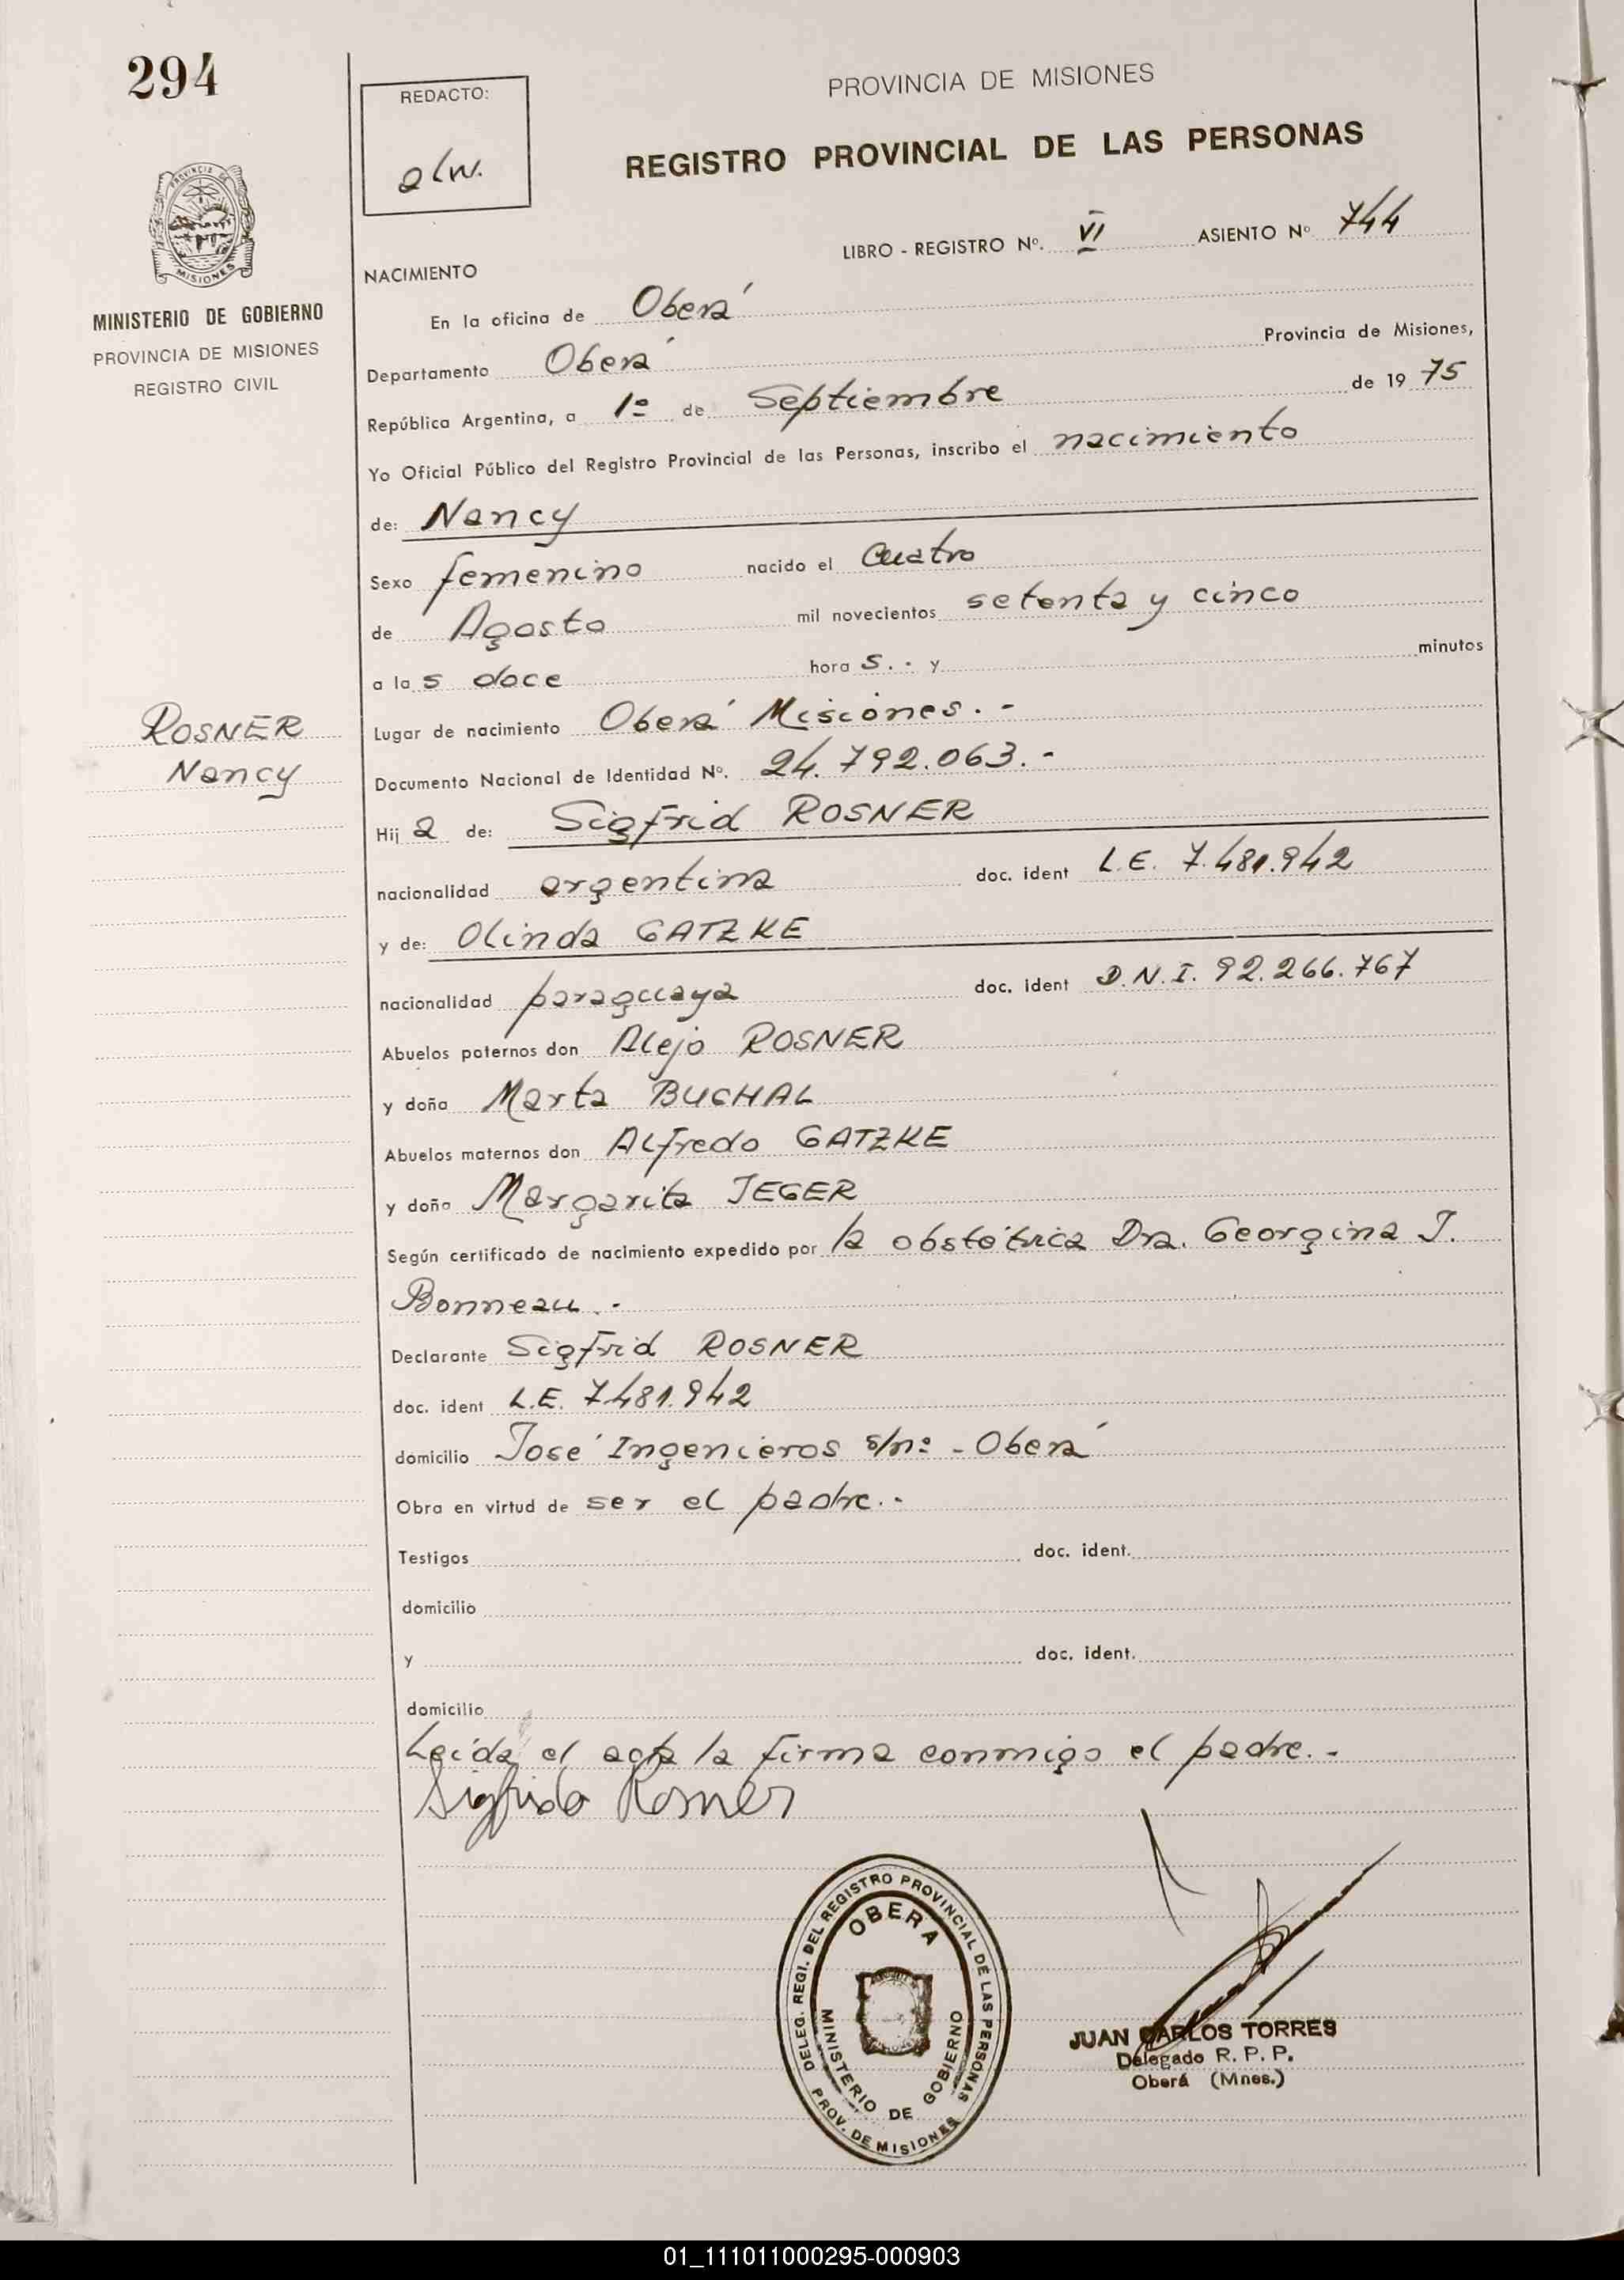 294
REDACTO:
alw.
PROVINCIA DE MISIONES
REGISTRO PROVINCIAL DE LAS PERSONAS
PROVINCIA DE
MISIONES
MINISTERIO DE GOBIERNO
PROVINCIA DE MISIONES
REGISTRO CIVIL
LIBRO - REGISTRO Nº. VI ASIENTO Nº 744
NACIMIENTO
En la oficina de Oberá
Departamento Oberá Provincia de Misiones,
República Argentina, a 1º de Septiembre de 19 75
Yo Oficial Público del Registro Provincial de las Personas, inscribo el nacimiento
de: Nancy
Sexo femenino nacido el Cuatro
de Agosto mil novecientos setenta y cinco
a la s doce hora s.. y minutos
Lugar de nacimiento Oberá Misiones.-
ROSNER
Nancy
Documento Nacional de Identidad Nº. 24.792.063.-
Hij a de: Sigfrid ROSNER
nacionalidad argentina doc. ident L.E. 7.481.942
y de: Olinda GATZKE
nacionalidad paraguaya doc. ident D.N.I. 92.266.767
Abuelos paternos don Alejo ROSNER
y doña Marta BUCHAL
Abuelos maternos don Alfredo GATZKE
y doña Margarita JEGER
Según certificado de nacimiento expedido por la obstétrica Dra. Georgina J.
Bonneau.-
Declarante Sigfrid ROSNER
doc. ident L.E. 7.481.942
domicilio José Ingenieros s/nº - Oberá
Obra en virtud de ser el padre.-
Testigos doc. ident.
domicilio
y doc. ident.
domicilio
Leída el acta la firma conmigo el padre.-
Sigfrido Rosner
DELEG. REGI. DEL REGISTRO PROVINCIAL DE LAS PERSONAS
OBERA
MINISTERIO DE GOBIERNO
PROV. DE MISIONES
JUAN CARLOS TORRES
Delegado R. P. P.
Oberá (Mnes.)
01_111011000295-000903